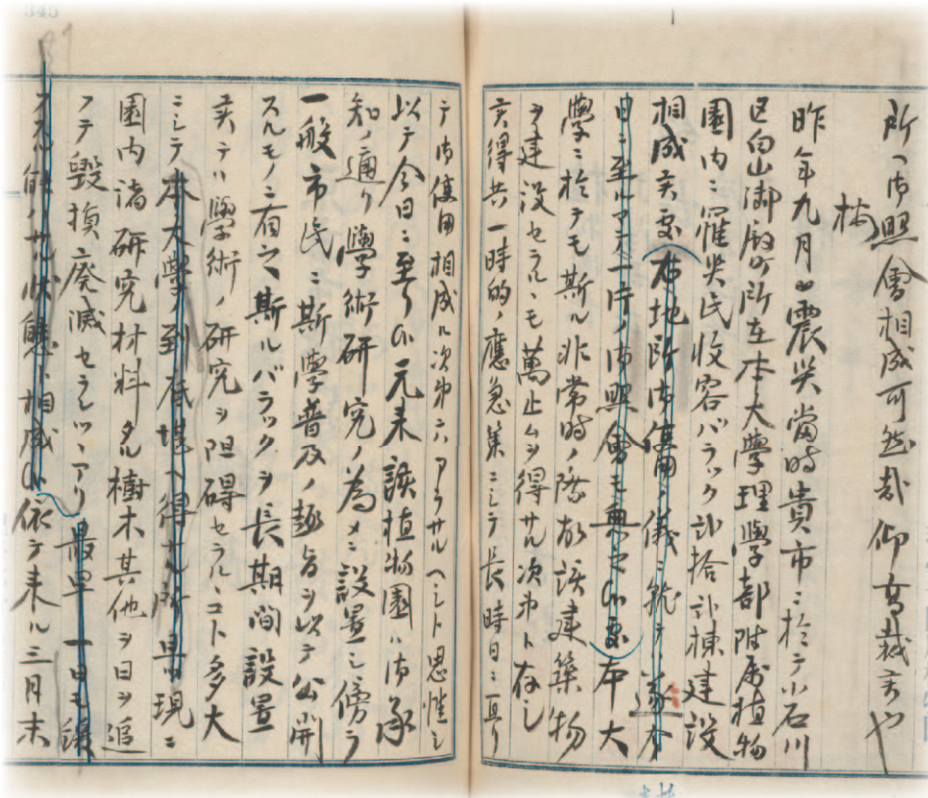 所へ御照會相成可然哉仰高裁候也
案
昨年九月ノ震災當時貴市ニ於テ小石川
区白山御殿町所在本大學理學部附属植物
園内ニ罹災民收容バラック弐拾弐棟建設
相成候處右地所御借用ノ儀ニ就テ遂今
日ニ至ルマテ一片ノ御照會モ無之候處本大
學ニ於テモ斯ル非常時ノ際故該建築物
ヲ建設セラルヽモ萬止ムヲ得サル次第ト存シ
候得共一時的ノ應急策ニシテ長時日ニ亘リ
テ御使用相成ル次第ニハアラサルヘシト思惟シ
以テ今日ニ至リ候元来該植物園ハ御承
知ノ通リ學術研究ノ為メニ設置シ傍ラ
一般市民ニ斯學普及ノ趣旨ヲ以テ公開
スルモノニ有之斯ルバラックヲ長期間設置
候テハ學術ノ研究ヲ阻碍セラルヽコト多大
ニシテ本大學ノ到底堪ヘ得サル所具現ニ
園内諸研究材料タル樹木其他ヲ日ヲ追
フテ毀損廃滅セラレツヽアリ最早一日モ緩
フスル能ハサル状態ニ相成候依テ来ル三月末
345